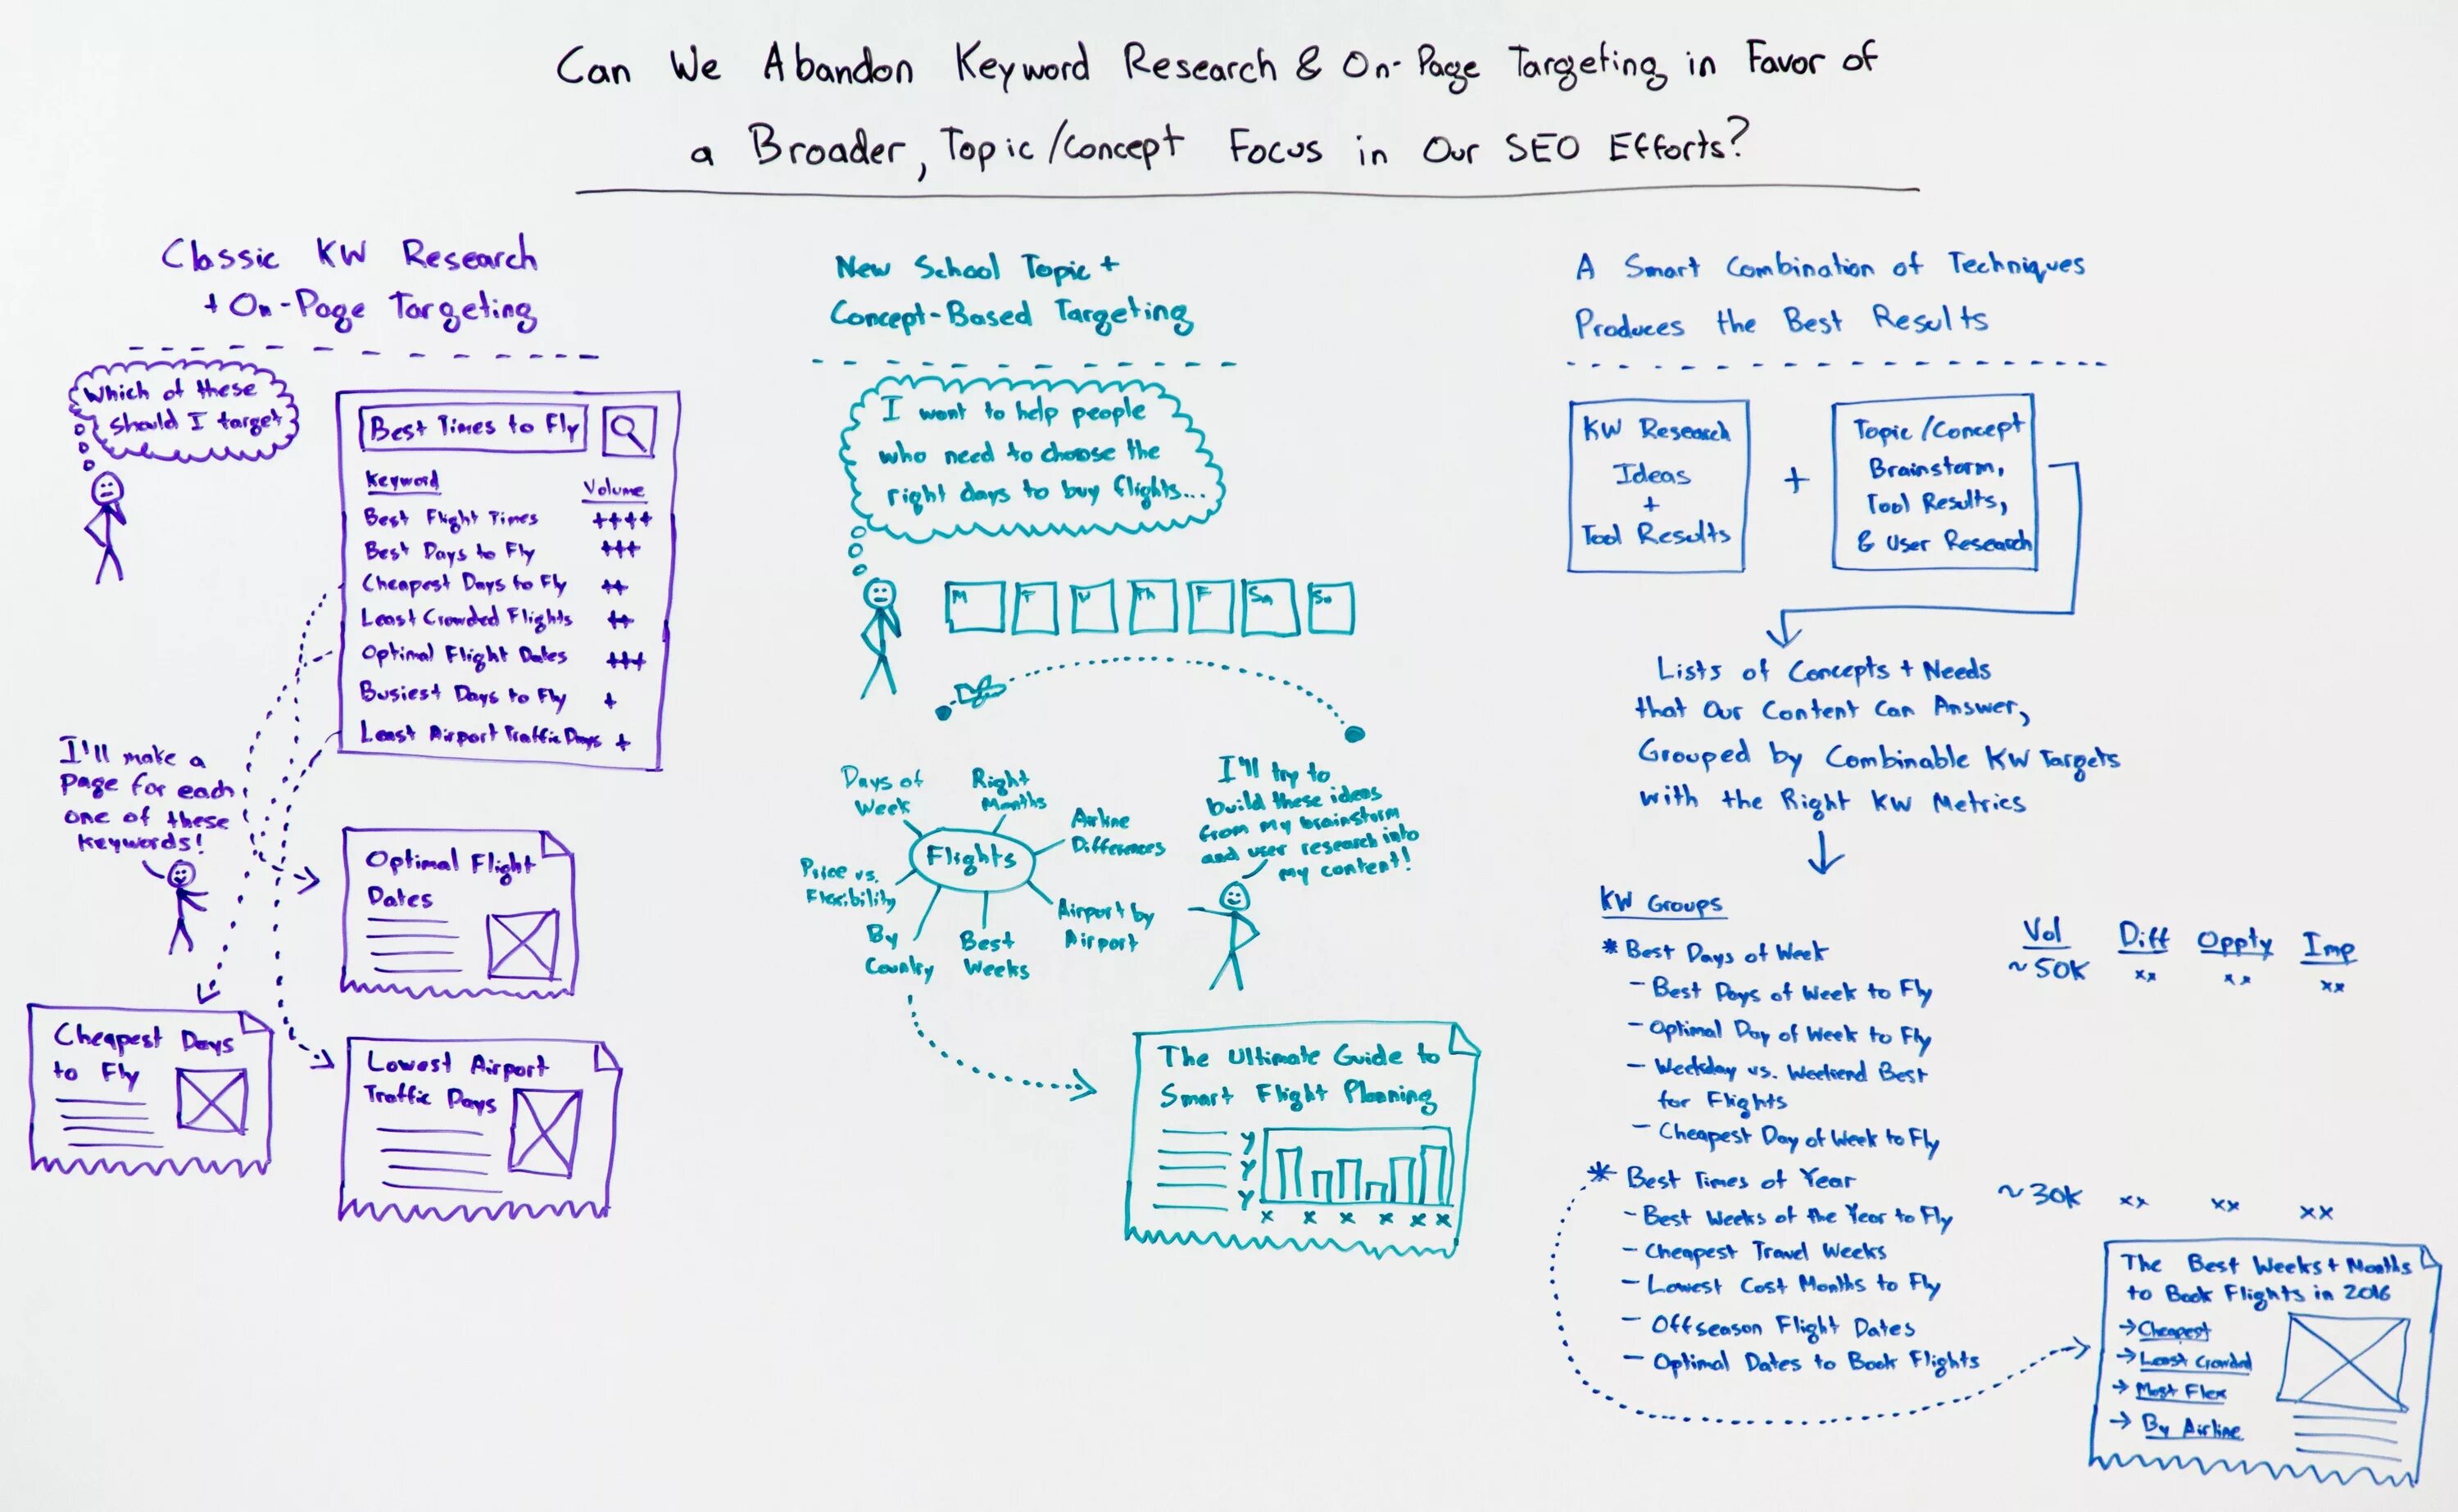 Can We Abandon Keyword Research & On-Page Targeting in Favor of
a Broader, Topic/Concept Focus in Our SEO Efforts?
Classic KW Research
+ On-Page Targeting
Which of these
should I target
Best Times to Fly
Keyword Volume
Best Flight Times ++++
Best Days to Fly +++
Cheapest Days to Fly ++
Least Crowded Flights ++
Optimal Flight Dates +++
Busiest Days to Fly +
Least Airport Traffic Days +
I'll make a
page for each
one of these
keywords!
Optimal Flight
Dates
Cheapest Days
to Fly
Lowest Airport
Traffic Days
New School Topic +
Concept-Based Targeting
I want to help people
who need to choose the
right days to buy flights...
M T W Th F Sa Su
Days of
Week
Right
Months
Airline
Differences
Flights
Price vs.
Flexibility
By
Country
Best
Weeks
Airport by
Airport
I'll try to
build these ideas
from my brainstorm
and user research into
my content!
The Ultimate Guide to
Smart Flight Planning
Y
Y
Y
x x x x x x
A Smart Combination of Techniques
Produces the Best Results
KW Research
Ideas
+
Tool Results
+
Topic/Concept
Brainstorm,
Tool Results,
& User Research
Lists of Concepts + Needs
that Our Content Can Answer,
Grouped by Combinable KW Targets
with the Right KW Metrics
KW Groups Vol Diff Oppty Imp
* Best Days of Week ~50K xx xx xx
- Best Days of Week to Fly
- Optimal Day of Week to Fly
- Weekday vs. Weekend Best
for Flights
- Cheapest Day of Week to Fly
* Best Times of Year ~30K xx xx xx
- Best Weeks of the Year to Fly
- Cheapest Travel Weeks
- Lowest Cost Months to Fly
- Offseason Flight Dates
- Optimal Dates to Book Flights
The Best Weeks + Months
to Book Flights in 2016
→ Cheapest
→ Least Crowded
→ Most Flex
→ By Airline